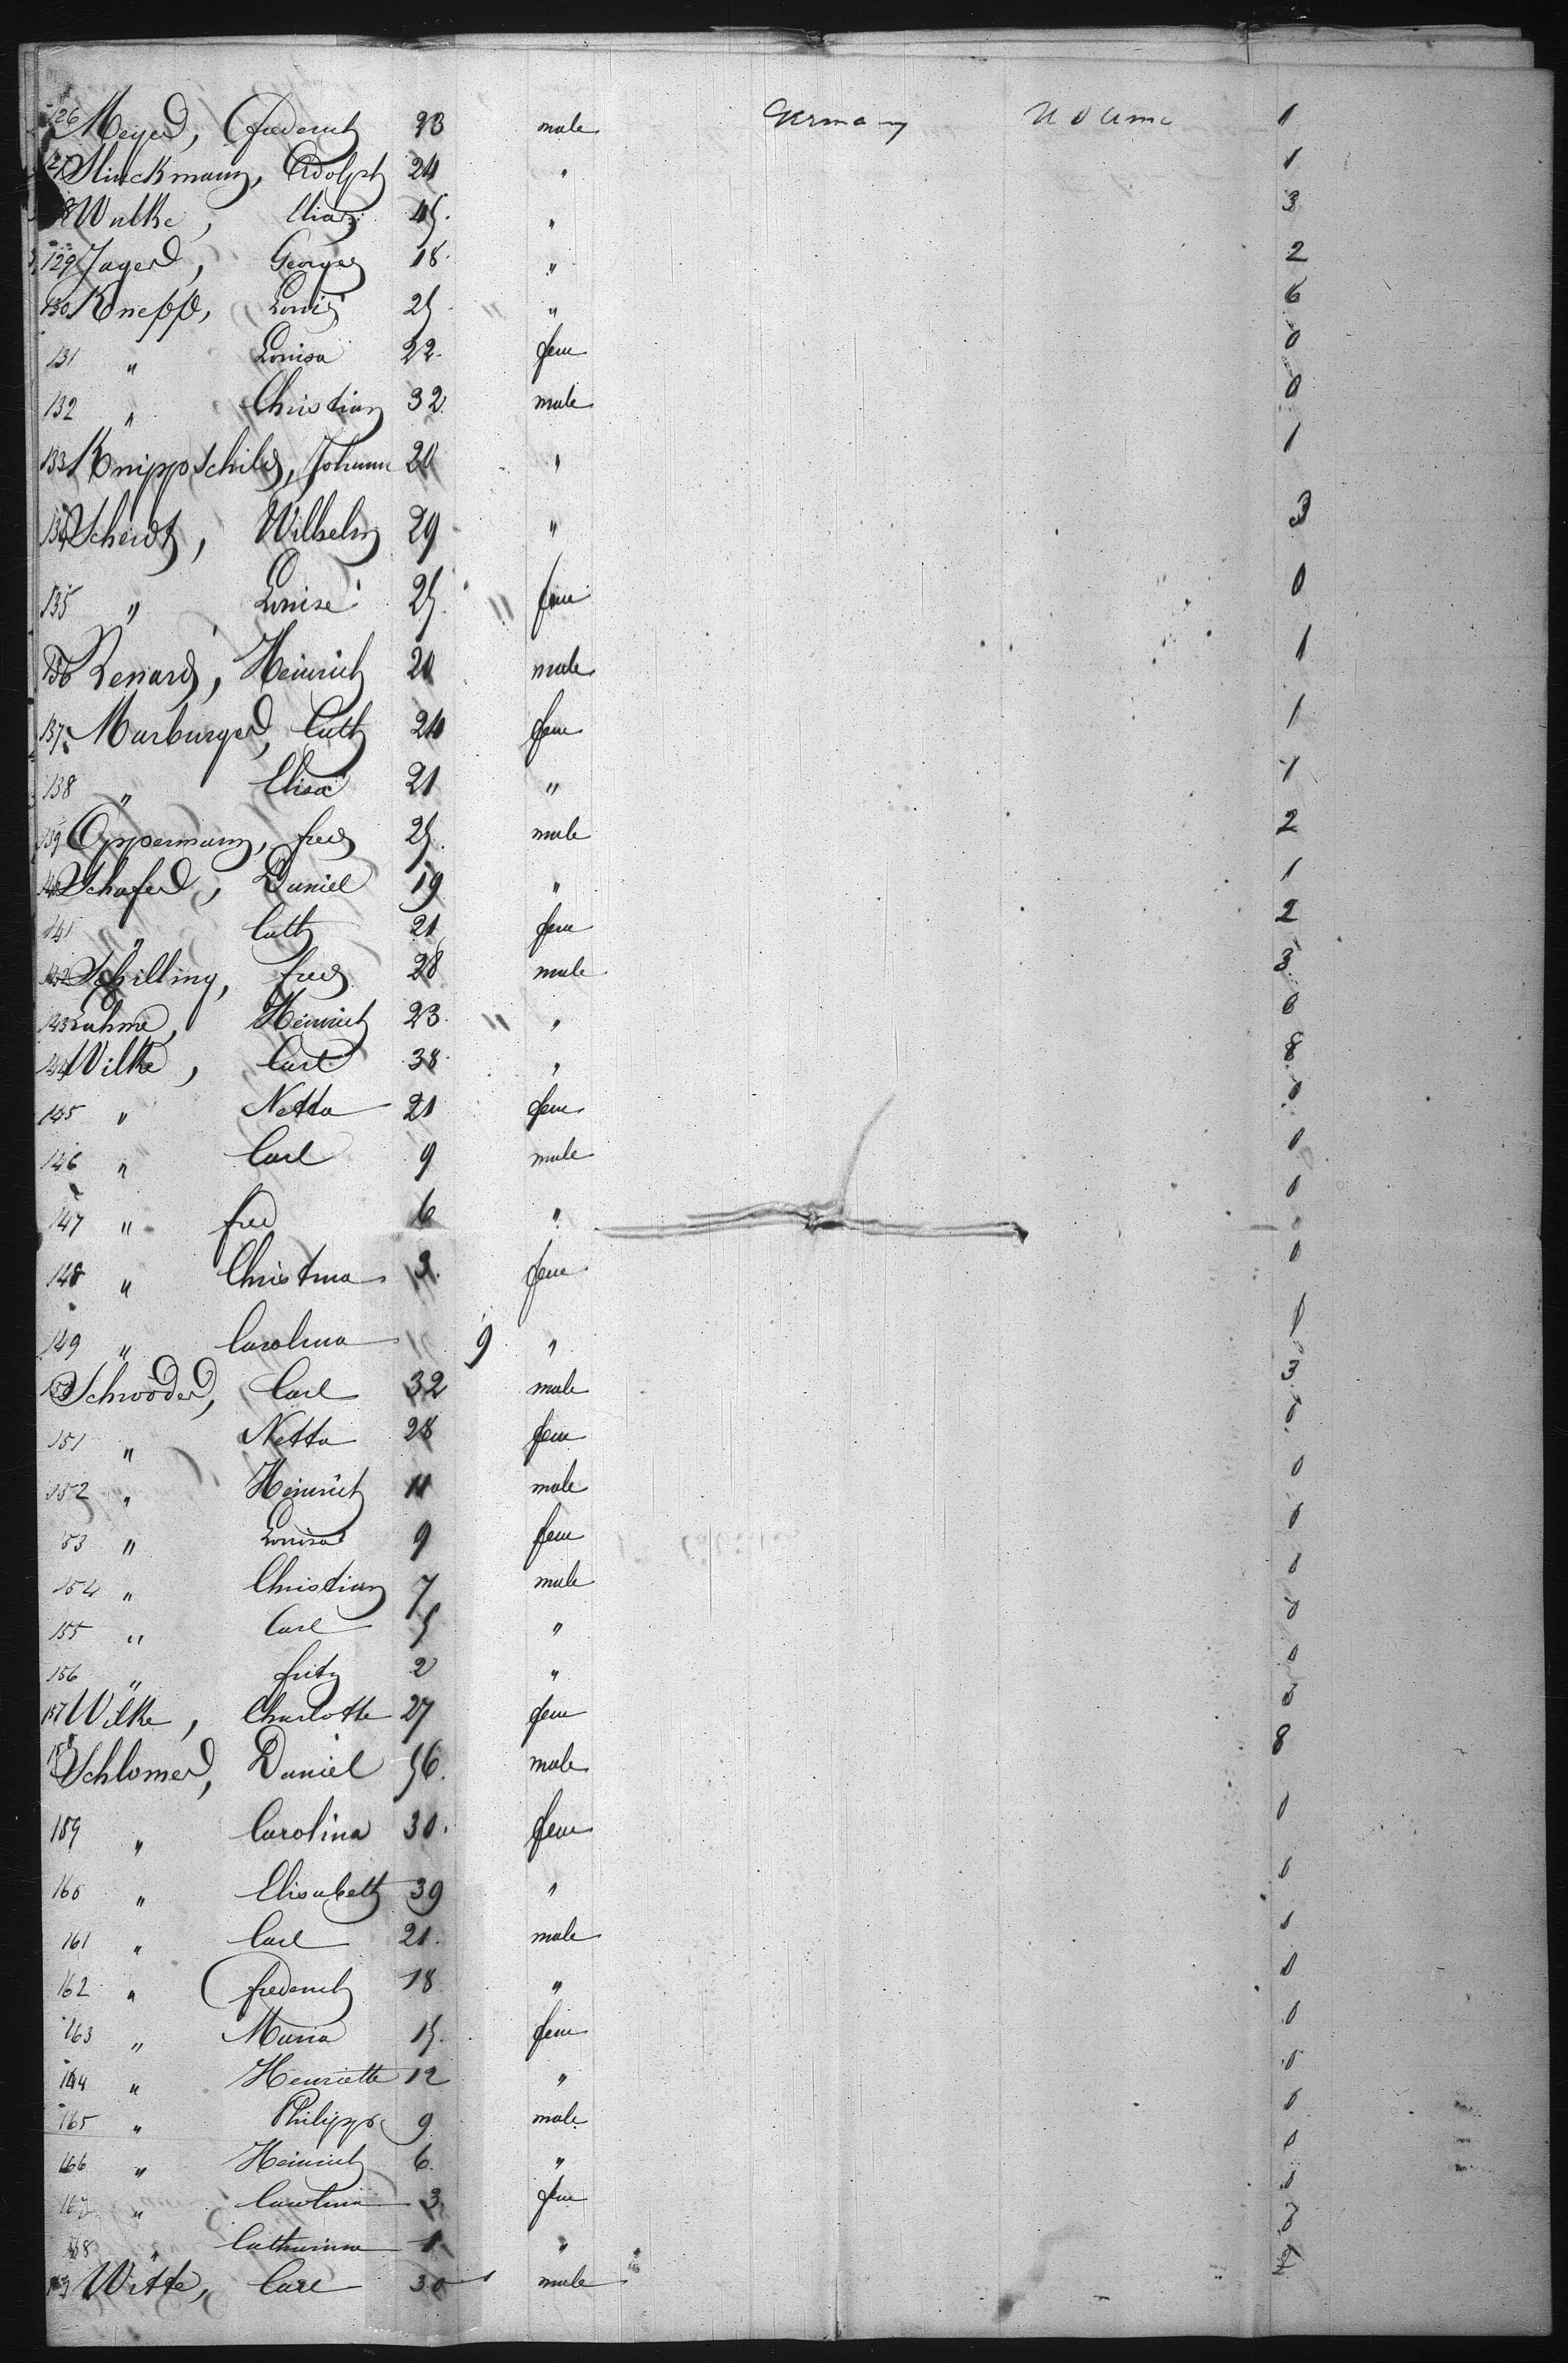 126 Meyer, Frederich 23 male Germany U S Ama 1
127 Stinckmann, Adolph 24 " 1
8 Wulke, 45 " 3
129 Jager, George 18 " 2
130 Knepp, Louis 25 " " 6
131 " Louisa 22 fem 0
132 " Christian 32 male 0
133 Knippschild, Johann 20 " 1
134 Scheidt, Wilhelm 29 " 3
135 " Louise 25 " fem 0
136 Renard, Heinrich 20 male 1
137 Marburger, Cath 24 fem 1
138 " Elisa 21 " 1
139 Oppermann, Fred 25 male 2
140 Schafer, Daniel 19 " 1
141 " Cath 21 fem 2
142 Schilling, Fred 28 male 3
143 Luhme, Heinrich 23 " " 0
144 Wilke, Carl 38 " 8
145 " Netta 21 fem 0
146 " Carl 9 male 0
147 " Fred 6 " 0
148 " Christina 3 fem 0
149 " Carolina 9 " 0
150 Schrooder, Carl 32 male 3
151 " Netta 28 fem 0
152 " Heinrich 11 male 0
153 " Louisa 9 fem 0
154 " Christian 7 male 0
155 " Carl 5 " 0
156 " Fritz 2 " 0
157 Wilke, Charlotte 27 fem
158 Schlomer, Daniel 56 male 8
159 " Carolina 30 fem 0
160 " Elisabeth 39 " 0
161 " Carl 21 male 0
162 " Frederich 18 " 0
163 " Maria 15 fem 0
164 " Henriette 12 " 0
165 " Philipp 9 male 0
166 " Heinrich 6 " 0
167 " Carolina 3 fem 0
168 " Catharina 1 " 0
Witte, Carl 30 male 2